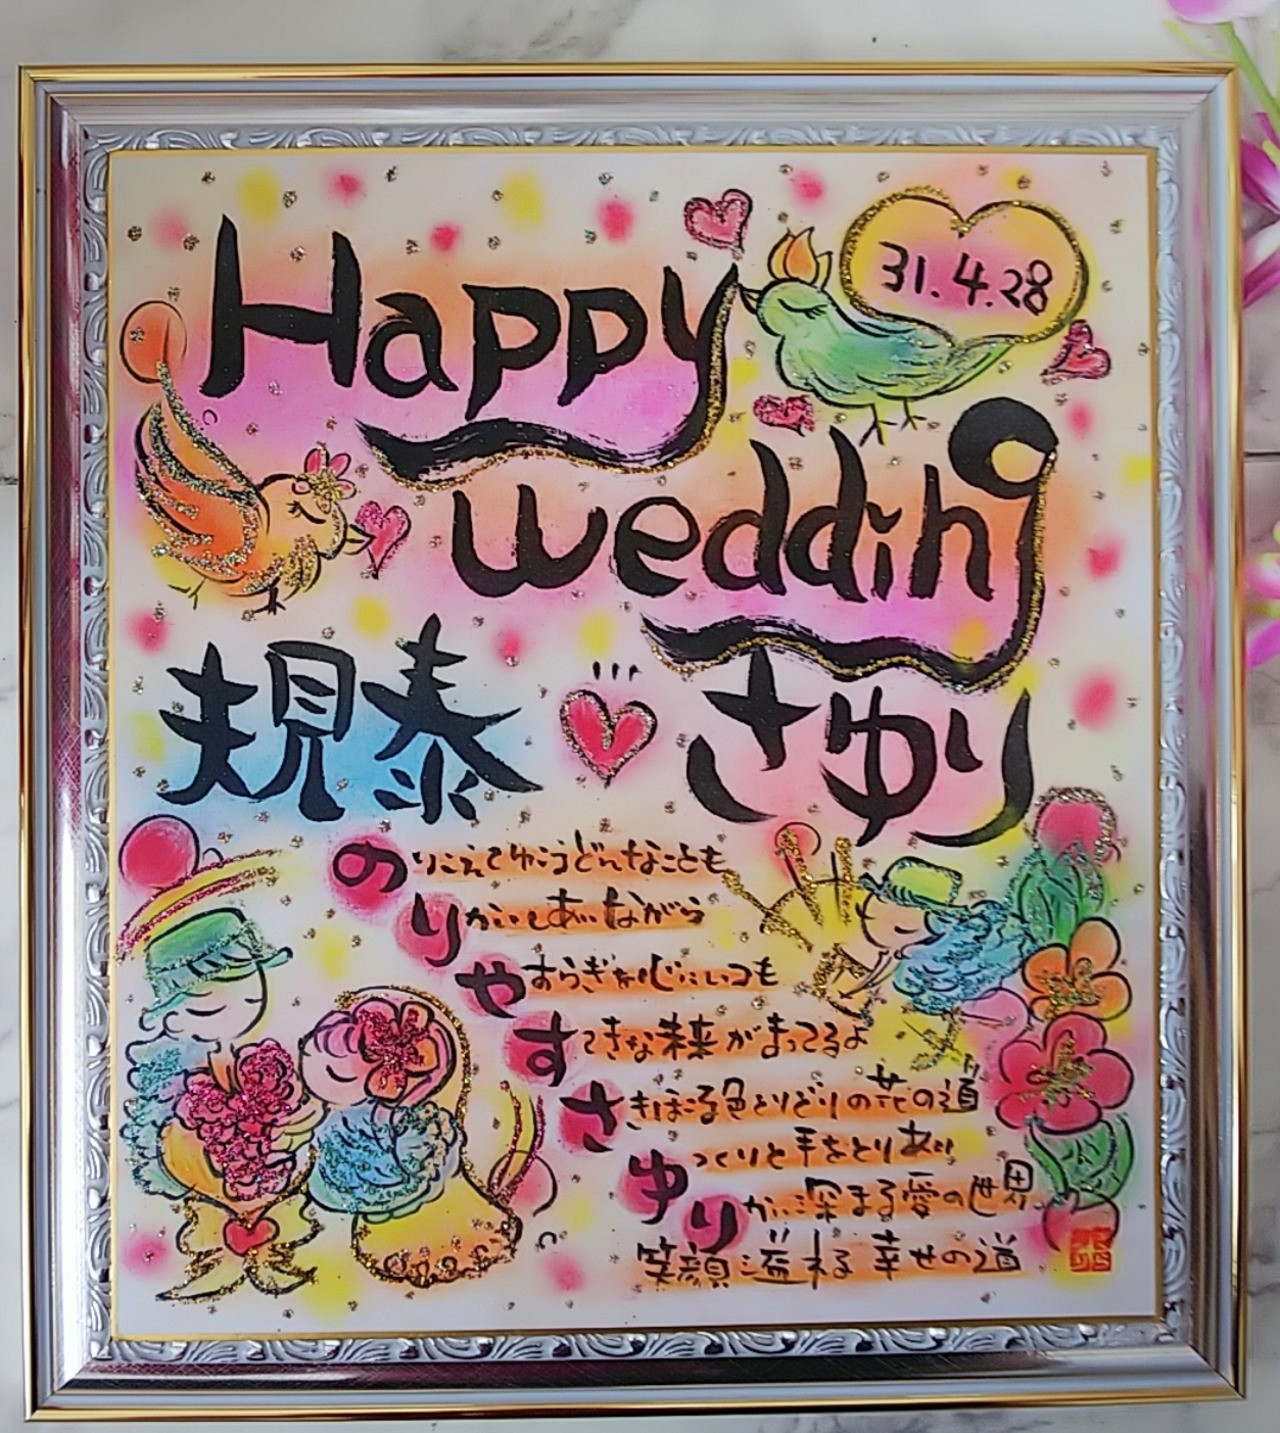 Happy
31.4.28
wedding
規泰 さゆり
のりこえてゆこうどんなことも
りかいしあいながら
やすらぎを心にいつも
すてきな未来がまってるよ
さきほこる色とりどりの花の道
ゆっくりと手をとりあい
りかい深まる愛の世界
笑顔溢れる幸せの道